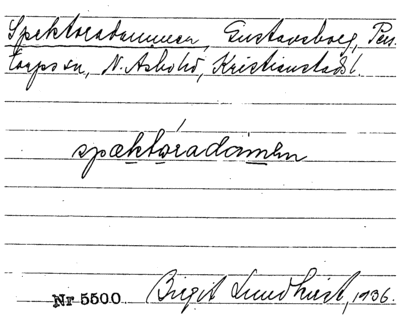 Spektoradammen, Gustavsborg, Per-
torps sn, N. Åsbo hd, Kristianstads l.
spæktóradámen
Nr 5500 Birgit Lundkvist, 1936.